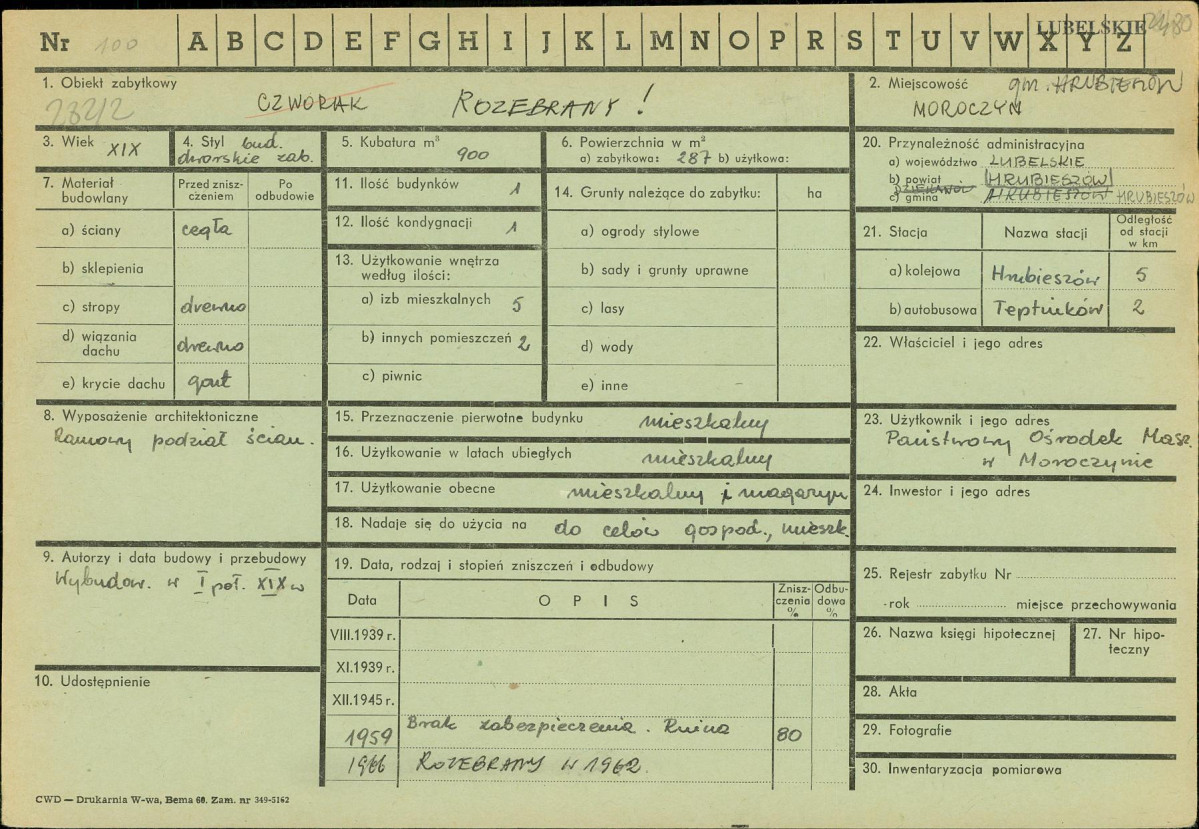 Nr 100 A B C D E F G H I J K L M N O P R S T U V W X Y Z LUBELSKIE
1. Obiekt zabytkowy
CZWORAK ROZEBRANY!
2. Miejscowość gm. HRUBIESZÓW
MOROCZYN
3. Wiek XIX
4. Styl bud.
dworskie zab.
5. Kubatura m³ 900
6. Powierzchnia w m²
a) zabytkowa: 287 b) użytkowa:
20. Przynależność administracyjna
a) województwo LUBELSKIE
b) powiat HRUBIESZÓW
c) gmina HRUBIESZÓW HRUBIESZÓW
7. Materiał budowlany
Przed zniszczeniem
Po odbudowie
a) ściany cegła
b) sklepienia
c) stropy drewno
d) wiązania dachu drewno
e) krycie dachu gont
11. Ilość budynków 1
12. Ilość kondygnacji 1
13. Użytkowanie wnętrza
według ilości:
a) izb mieszkalnych 5
b) innych pomieszczeń 2
c) piwnic
14. Grunty należące do zabytku: ha
a) ogrody stylowe
b) sady i grunty uprawne
c) lasy
d) wody
e) inne
21. Stacja Nazwa stacji Odległość od stacji w km
a) kolejowa Hrubieszów 5
b) autobusowa Teptiuków 2
22. Właściciel i jego adres
8. Wyposażenie architektoniczne
Ramowy podział ścian.
15. Przeznaczenie pierwotne budynku mieszkalny
16. Użytkowanie w latach ubiegłych mieszkalny
17. Użytkowanie obecne mieszkalny i magazyn
18. Nadaje się do użycia na do celów gospod., mieszk.
23. Użytkownik i jego adres
Państwowy Ośrodek Masz.
w Moroczynie
24. Inwestor i jego adres
9. Autorzy i data budowy i przebudowy
Wybudow. w I poł. XIX w
19. Data, rodzaj i stopień zniszczeń i odbudowy
Data OPIS Zniszczenia % Odbudowa %
VIII.1939 r.
XI.1939 r.
XII.1945 r.
1959 Brak zabezpieczenia. Ruina 80
1966 ROZEBRANY W 1962.
25. Rejestr zabytku Nr
rok miejsce przechowywania
26. Nazwa księgi hipotecznej
27. Nr hipoteczny
10. Udostępnienie
28. Akta
29. Fotografie
30. Inwentaryzacja pomiarowa
CWD — Drukarnia W-wa, Bema 60. Zam. nr 349-5162